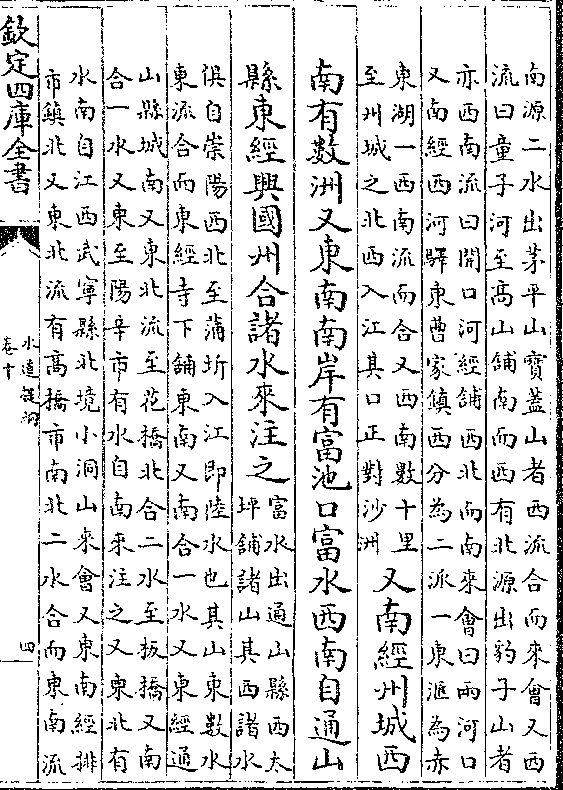 南源二水出茅平山寶蓋山者西流合而來會又西
流曰童子河至高山舖南而西有北源出豹子山者
亦西南流曰開口河經舖西北而南來會曰兩河口
又南經西河驛東曹家鎮西分為二派一東滙為赤
東湖一西南流而合又西南數十里
至州城之北西入江其口正對沙洲
又南經州城西
南有數洲又東南南岸有富池口富水西南自通山
縣東經興國州合諸水來注之
富水出通山縣西太
坪舖諸山其西諸水
俱自崇陽西北至蒲圻入江即陸水也其山東數水
東流合而東經寺下舖東南又南合一水又東經通
山縣城南又東北流至花橋北合二水至板橋又南
合一水又東至陽辛市有水自南來注之又東北有
水南自江西武寧縣北境小洞山來會又東南經排
市鎮北又東北流有高橋市南北二水合而東南流
欽定四庫全書
水道提綱
卷十
四